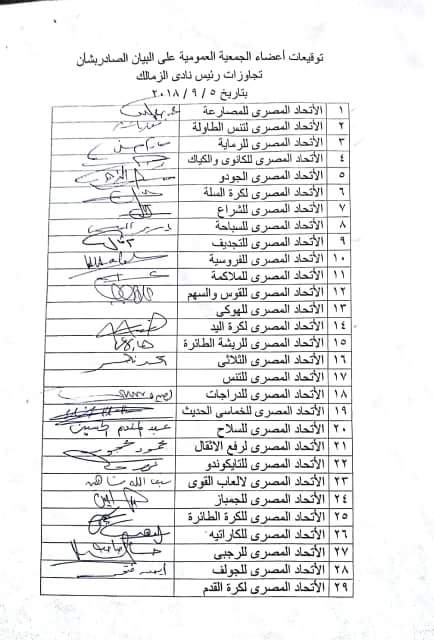 توقيعات أعضاء الجمعية العمومية على البيان الصادربشان
تجاوزات رئيس نادى الزمالك
بتاريخ ٥ / ٩ / ٢٠١٨
١ الأتحاد المصرى للمصارعة
٢ الأتحاد المصرى لتنس الطاولة
٣ الأتحاد المصرى للرماية
٤ الأتحاد المصرى للكانوى والكياك
٥ الأتحاد المصرى الجودو
٦ الأتحاد المصرى لكرة السلة
٧ الأتحاد المصرى للشراع
٨ الأتحاد المصرى للسباحة
٩ الأتحاد المصرى للتجديف
١٠ الأتحاد المصرى للفروسية
١١ الأتحاد المصرى للملاكمة
١٢ الأتحاد المصرى للقوس والسهم
١٣ الأتحاد المصرى للهوكى
١٤ الأتحاد المصرى لكرة اليد
١٥ الأتحاد المصرى للريشة الطائرة
١٦ الأتحاد المصرى الثلاثى
١٧ الأتحاد المصرى للتنس
١٨ الأتحاد المصرى للدراجات
١٩ الأتحاد المصرى للخماسى الحديث
٢٠ الأتحاد المصرى للسلاح عبد المنعم الحسين
٢١ الأتحاد المصرى لرفع الاثقال محمود محجوب
٢٢ الأتحاد المصرى للتايكوندو
٢٣ الأتحاد المصرى لالعاب القوى
٢٤ الأتحاد المصرى للجمباز
٢٥ الأتحاد المصرى للكرة الطائرة
٢٦ الأتحاد المصرى للكاراتيه
٢٧ الأتحاد المصرى للرجبى
٢٨ الأتحاد المصرى للجولف
٢٩ الأتحاد المصرى لكرة القدم